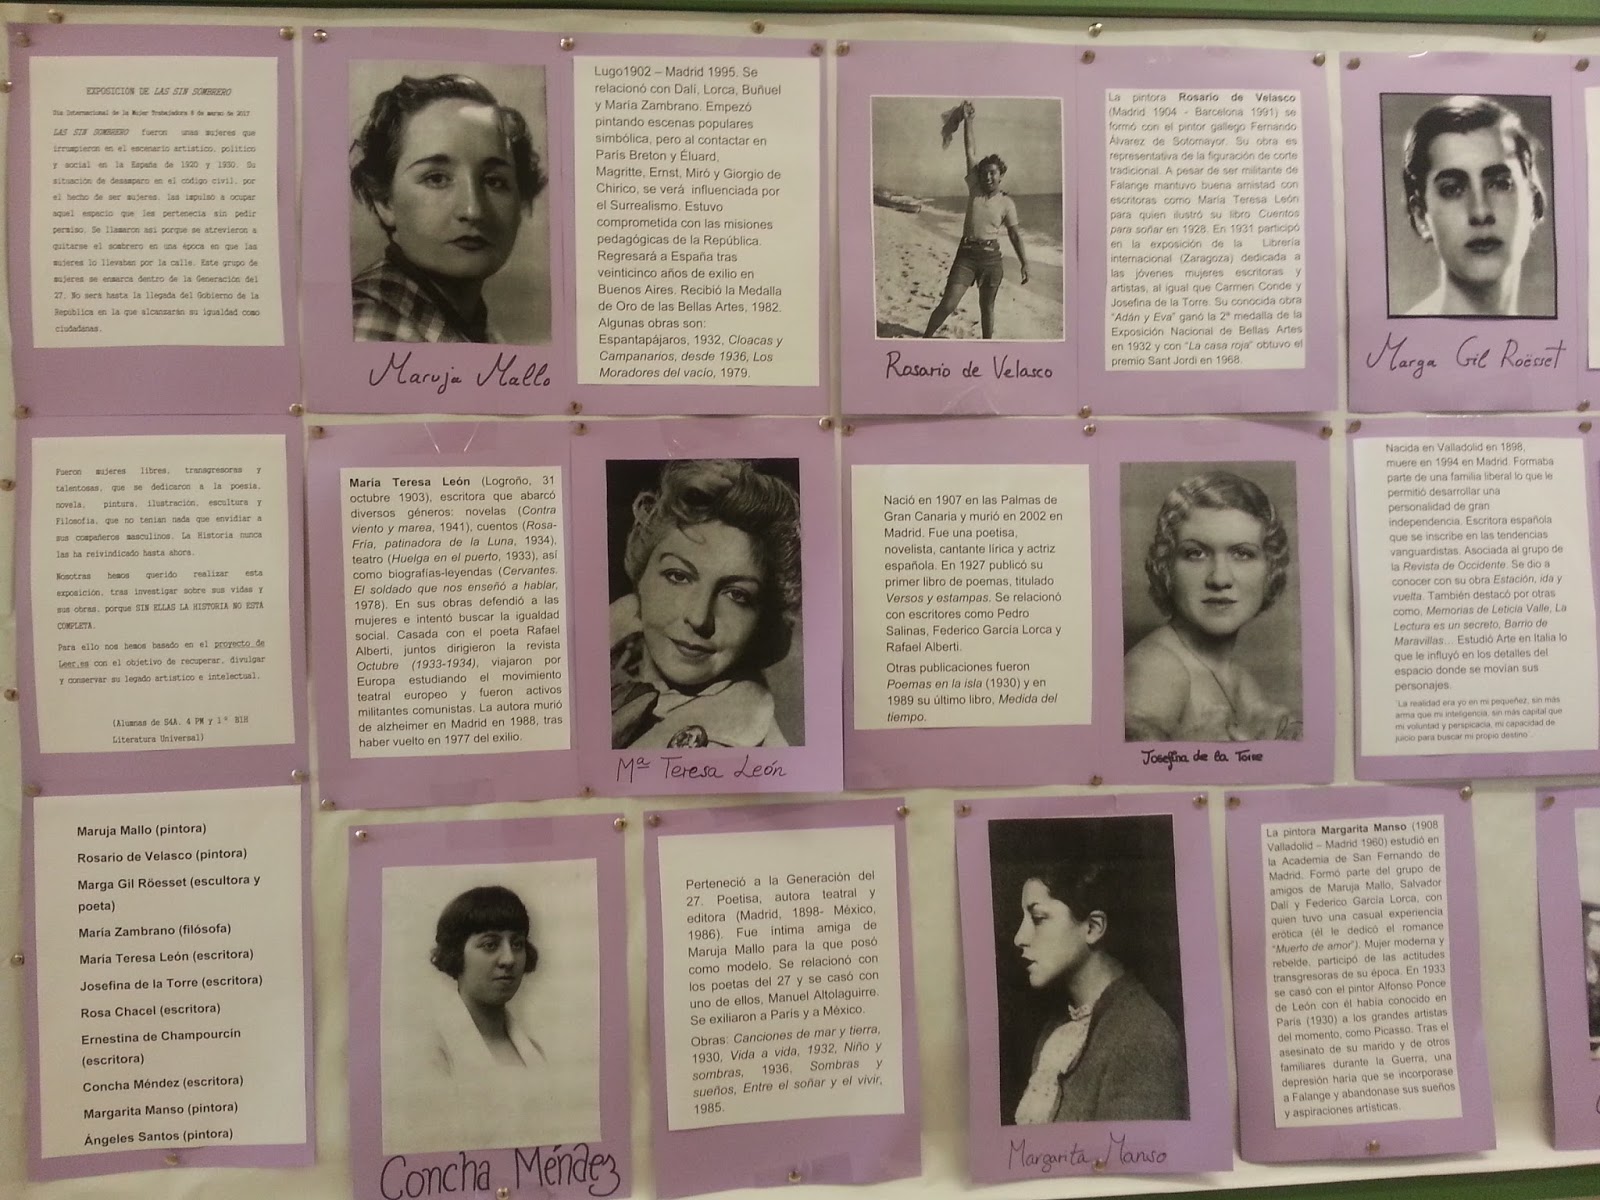 EXPOSICIÓN DE LAS SIN SOMBRERO
Día Internacional de la Mujer Trabajadora 8 de marzo de 2017
LAS SIN SOMBRERO fueron unas mujeres que
irrumpieron en el escenario artístico, político
y social en la España de 1920 y 1930. Su
situación de desamparo en el código civil, por
el hecho de ser mujeres, las impulsó a ocupar
aquel espacio que les pertenecía sin pedir
permiso. Se llamaron así porque se atrevieron a
quitarse el sombrero en una época en que las
mujeres lo llevaban por la calle. Este grupo de
mujeres se enmarca dentro de la Generación del
27. No será hasta la llegada del Gobierno de la
República en la que alcanzarán su igualdad como
ciudadanas.
Maruja Mallo
Lugo1902 – Madrid 1995. Se
relacionó con Dalí, Lorca, Buñuel
y María Zambrano. Empezó
pintando escenas populares
simbólica, pero al contactar en
París Breton y Éluard,
Magritte, Ernst, Miró y Giorgio de
Chirico, se verá influenciada por
el Surrealismo. Estuvo
comprometida con las misiones
pedagógicas de la República.
Regresará a España tras
veinticinco años de exilio en
Buenos Aires. Recibió la Medalla
de Oro de las Bellas Artes, 1982.
Algunas obras son:
Espantapájaros, 1932, Cloacas y
Campanarios, desde 1936, Los
Moradores del vacío, 1979.
Rosario de Velasco
La pintora Rosario de Velasco
(Madrid 1904 - Barcelona 1991) se
formó con el pintor gallego Fernando
Álvarez de Sotomayor. Su obra es
representativa de la figuración de corte
tradicional. A pesar de ser militante de
Falange mantuvo buena amistad con
escritoras como María Teresa León
para quien ilustró su libro Cuentos
para soñar en 1928. En 1931 participó
en la exposición de la Librería
internacional (Zaragoza) dedicada a
las jóvenes mujeres escritoras y
artistas, al igual que Carmen Conde y
Josefina de la Torre. Su conocida obra
“Adán y Eva” ganó la 2ª medalla de la
Exposición Nacional de Bellas Artes
en 1932 y con “La casa roja” obtuvo el
premio Sant Jordi en 1968.
Marga Gil Roësset
Fueron mujeres libres, transgresoras y
talentosas, que se dedicaron a la poesía,
novela, pintura, ilustración, escultura y
Filosofía, que no tenían nada que envidiar a
sus compañeros masculinos. La Historia nunca
las ha reivindicado hasta ahora.
Nosotras hemos querido realizar esta
exposición, tras investigar sobre sus vidas y
sus obras, porque SIN ELLAS LA HISTORIA NO ESTÁ
COMPLETA.
Para ello nos hemos basado en el proyecto de
Leer.es con el objetivo de recuperar, divulgar
y conservar su legado artístico e intelectual.
(Alumnas de S4A, 4 PM y 1º B1H
Literatura Universal)
María Teresa León (Logroño, 31
octubre 1903), escritora que abarcó
diversos géneros: novelas (Contra
viento y marea, 1941), cuentos (Rosa-
Fría, patinadora de la Luna, 1934),
teatro (Huelga en el puerto, 1933), así
como biografías-leyendas (Cervantes.
El soldado que nos enseñó a hablar,
1978). En sus obras defendió a las
mujeres e intentó buscar la igualdad
social. Casada con el poeta Rafael
Alberti, juntos dirigieron la revista
Octubre (1933-1934), viajaron por
Europa estudiando el movimiento
teatral europeo y fueron activos
militantes comunistas. La autora murió
de alzheimer en Madrid en 1988, tras
haber vuelto en 1977 del exilio.
Mª Teresa León
Nació en 1907 en las Palmas de
Gran Canaria y murió en 2002 en
Madrid. Fue una poetisa,
novelista, cantante lírica y actriz
española. En 1927 publicó su
primer libro de poemas, titulado
Versos y estampas. Se relacionó
con escritores como Pedro
Salinas, Federico García Lorca y
Rafael Alberti.
Otras publicaciones fueron
Poemas en la isla (1930) y en
1989 su último libro, Medida del
tiempo.
Josefina de la Torre
Nacida en Valladolid en 1898,
muere en 1994 en Madrid. Formaba
parte de una familia liberal lo que le
permitió desarrollar una
personalidad de gran
independencia. Escritora española
que se inscribe en las tendencias
vanguardistas. Asociada al grupo de
la Revista de Occidente. Se dio a
conocer con su obra Estación, ida y
vuelta. También destacó por otras
como, Memorias de Leticia Valle, La
Lectura es un secreto, Barrio de
Maravillas... Estudió Arte en Italia lo
que le influyó en los detalles del
espacio donde se movían sus
personajes.
“La realidad era yo en mi pequeñez, sin más
arma que mi inteligencia, sin más capital que
mi voluntad y perspicacia, mi capacidad de
juicio para buscar mi propio destino”.
Maruja Mallo (pintora)
Rosario de Velasco (pintora)
Marga Gil Röesset (escultora y
poeta)
María Zambrano (filósofa)
María Teresa León (escritora)
Josefina de la Torre (escritora)
Rosa Chacel (escritora)
Ernestina de Champourcín
(escritora)
Concha Méndez (escritora)
Margarita Manso (pintora)
Ángeles Santos (pintora)
Concha Méndez
Perteneció a la Generación del
27. Poetisa, autora teatral y
editora (Madrid, 1898- México,
1986). Fue íntima amiga de
Maruja Mallo para la que posó
como modelo. Se relacionó con
los poetas del 27 y se casó con
uno de ellos, Manuel Altolaguirre.
Se exiliaron a París y a México.
Obras: Canciones de mar y tierra,
1930, Vida a vida, 1932, Niño y
sombras, 1936, Sombras y
sueños, Entre el soñar y el vivir,
1985.
Margarita Manso
La pintora Margarita Manso (1908
Valladolid – Madrid 1960) estudió en
la Academia de San Fernando de
Madrid. Formó parte del grupo de
amigos de Maruja Mallo, Salvador
Dalí y Federico García Lorca, con
quien tuvo una casual experiencia
erótica (él le dedicó el romance
“Muerto de amor”). Mujer moderna y
rebelde, participó de las actitudes
transgresoras de su época. En 1933
se casó con el pintor Alfonso Ponce
de León con él había conocido en
París (1930) a los grandes artistas
del momento, como Picasso. Tras el
asesinato de su marido y de otros
familiares durante la Guerra, una
depresión haría que se incorporase
a Falange y abandonase sus sueños
y aspiraciones artísticas.